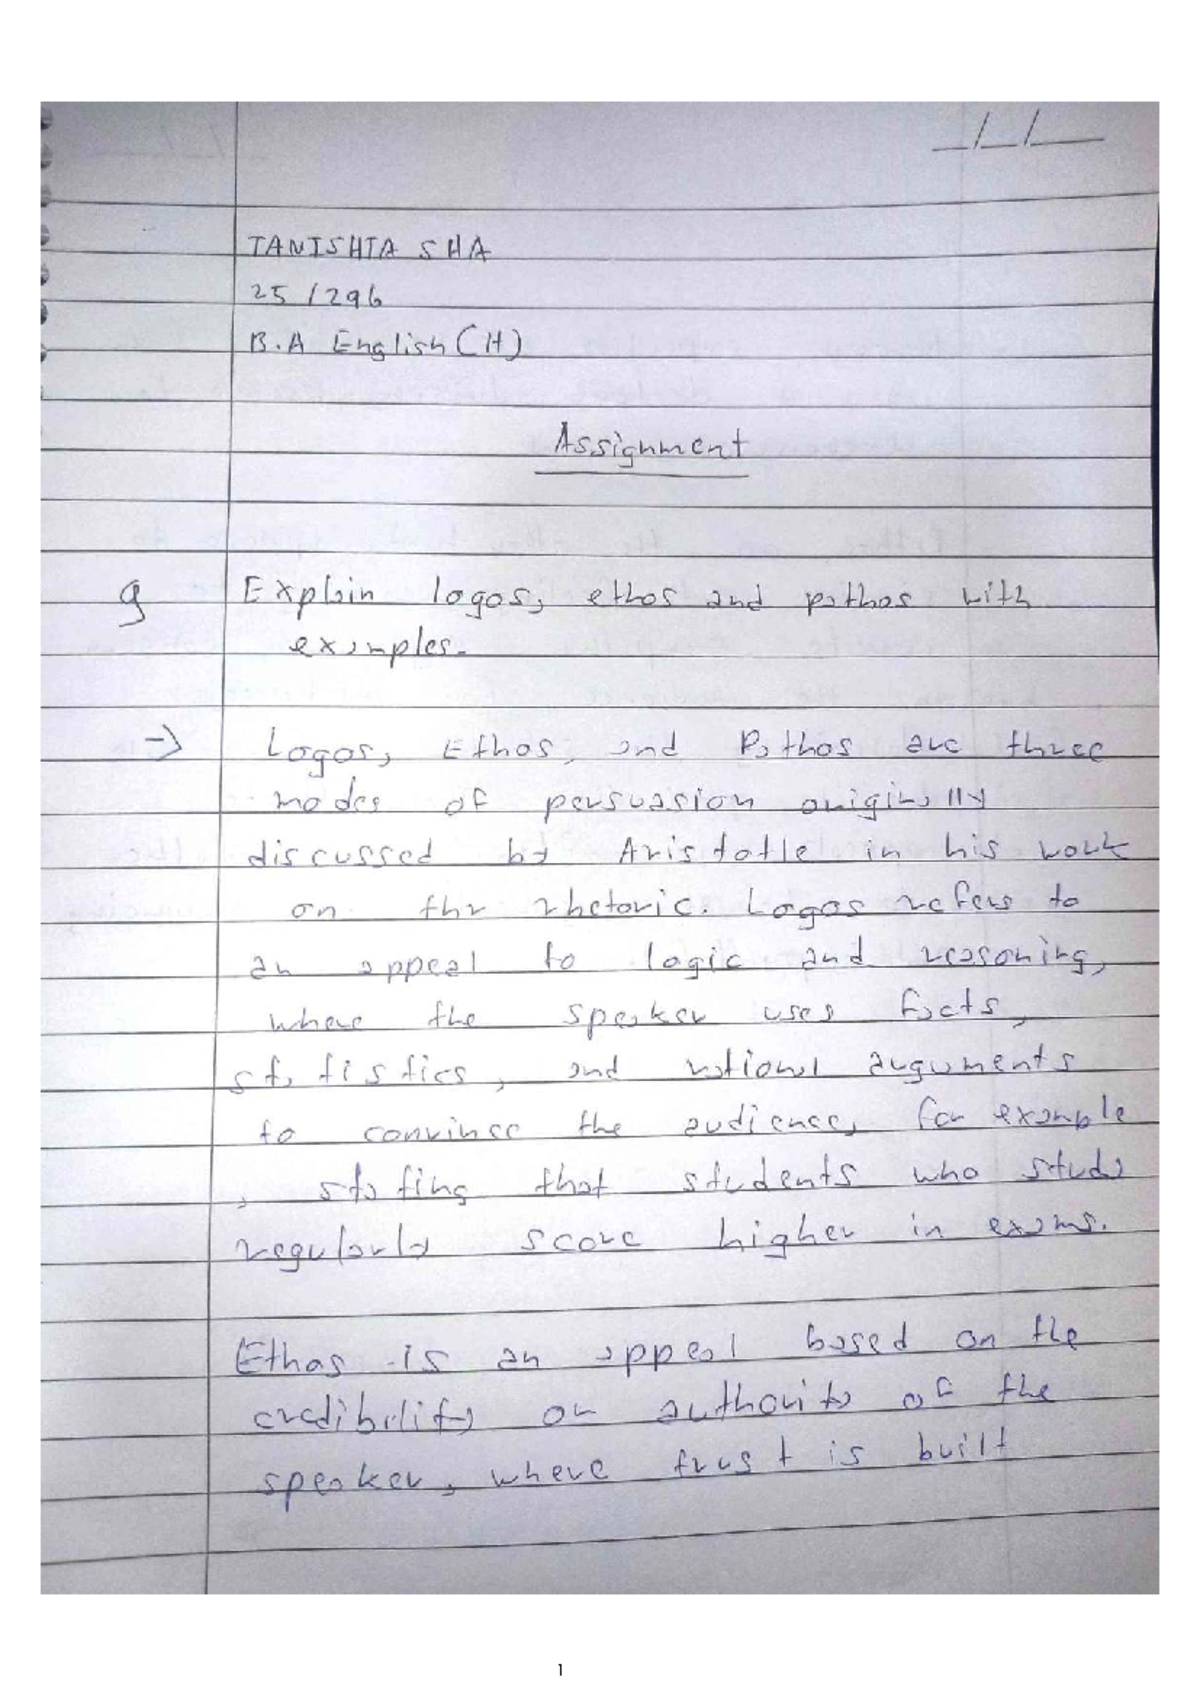 _/_/__
TANISHTA SHA
25/296
B.A English (H)
Assignment
g Explain logos, ethos and pathos with
examples.
→ Logos, Ethos, and Pathos are three
modes of persuasion originally
discussed by Aristotle in his work
on thr rhetoric. Logos refers to
an appeal to logic and reasoning,
where the speaker uses facts,
statistics, and rational arguments
to convince the audience, for example
, stating that students who study
regularly score higher in exams.
Ethos is an appeal based on the
credibility or authority of the
speaker, where trust is built
1